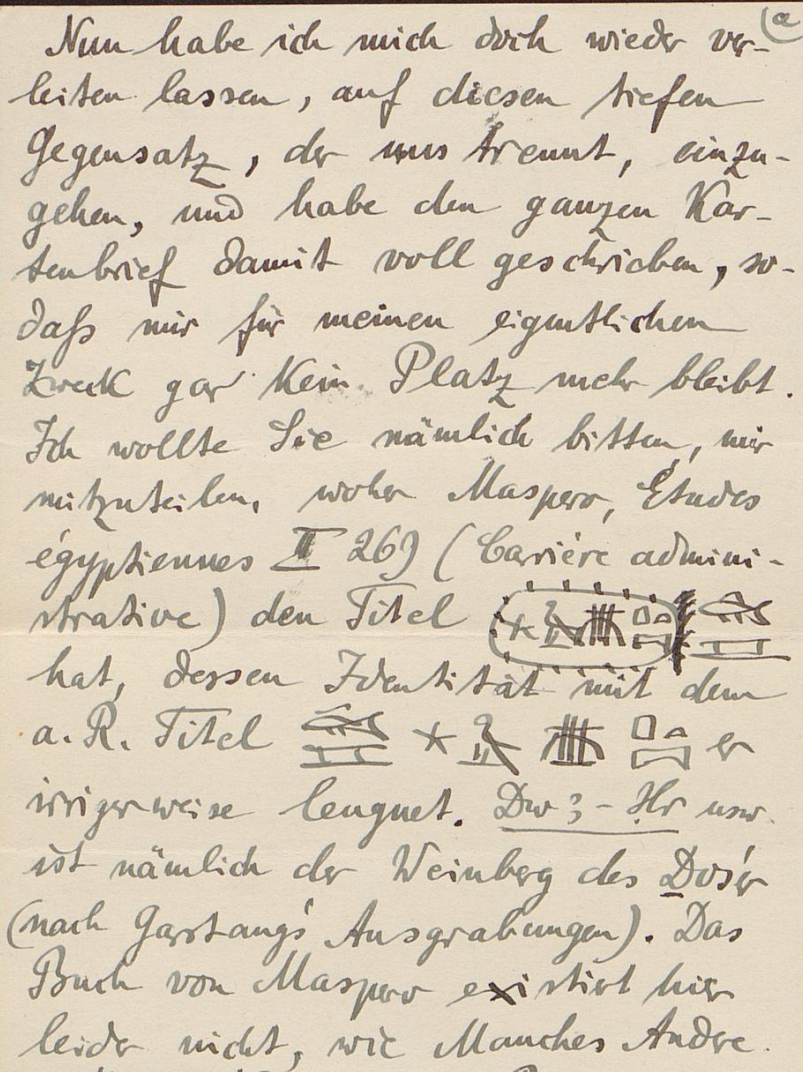 (a
Nun habe ich mich doch wieder ver-
leiten lassen, auf diesen tiefen
Gegensatz, der uns trennt, einzu-
gehen, und habe den ganzen Kar-
tenbrief damit voll geschrieben, so-
daß mir für meinen eigentlichen
Zweck gar kein Platz mehr bleibt.
Ich wollte Sie nämlich bitten, mir
mitzuteilen, woher Maspero, Études
égyptiennes II 269 (Carrière admini-
strative) den Titel
hat, dessen Identität mit dem
a. R. Titel er
irrigerweise leugnet. Dw3-Ḥr usw.
ist nämlich der Weinberg des Ḏośer
(nach Garstangs Ausgrabungen). Das
Buch von Maspero existirt hier
leider nicht, wie Manches Andre.